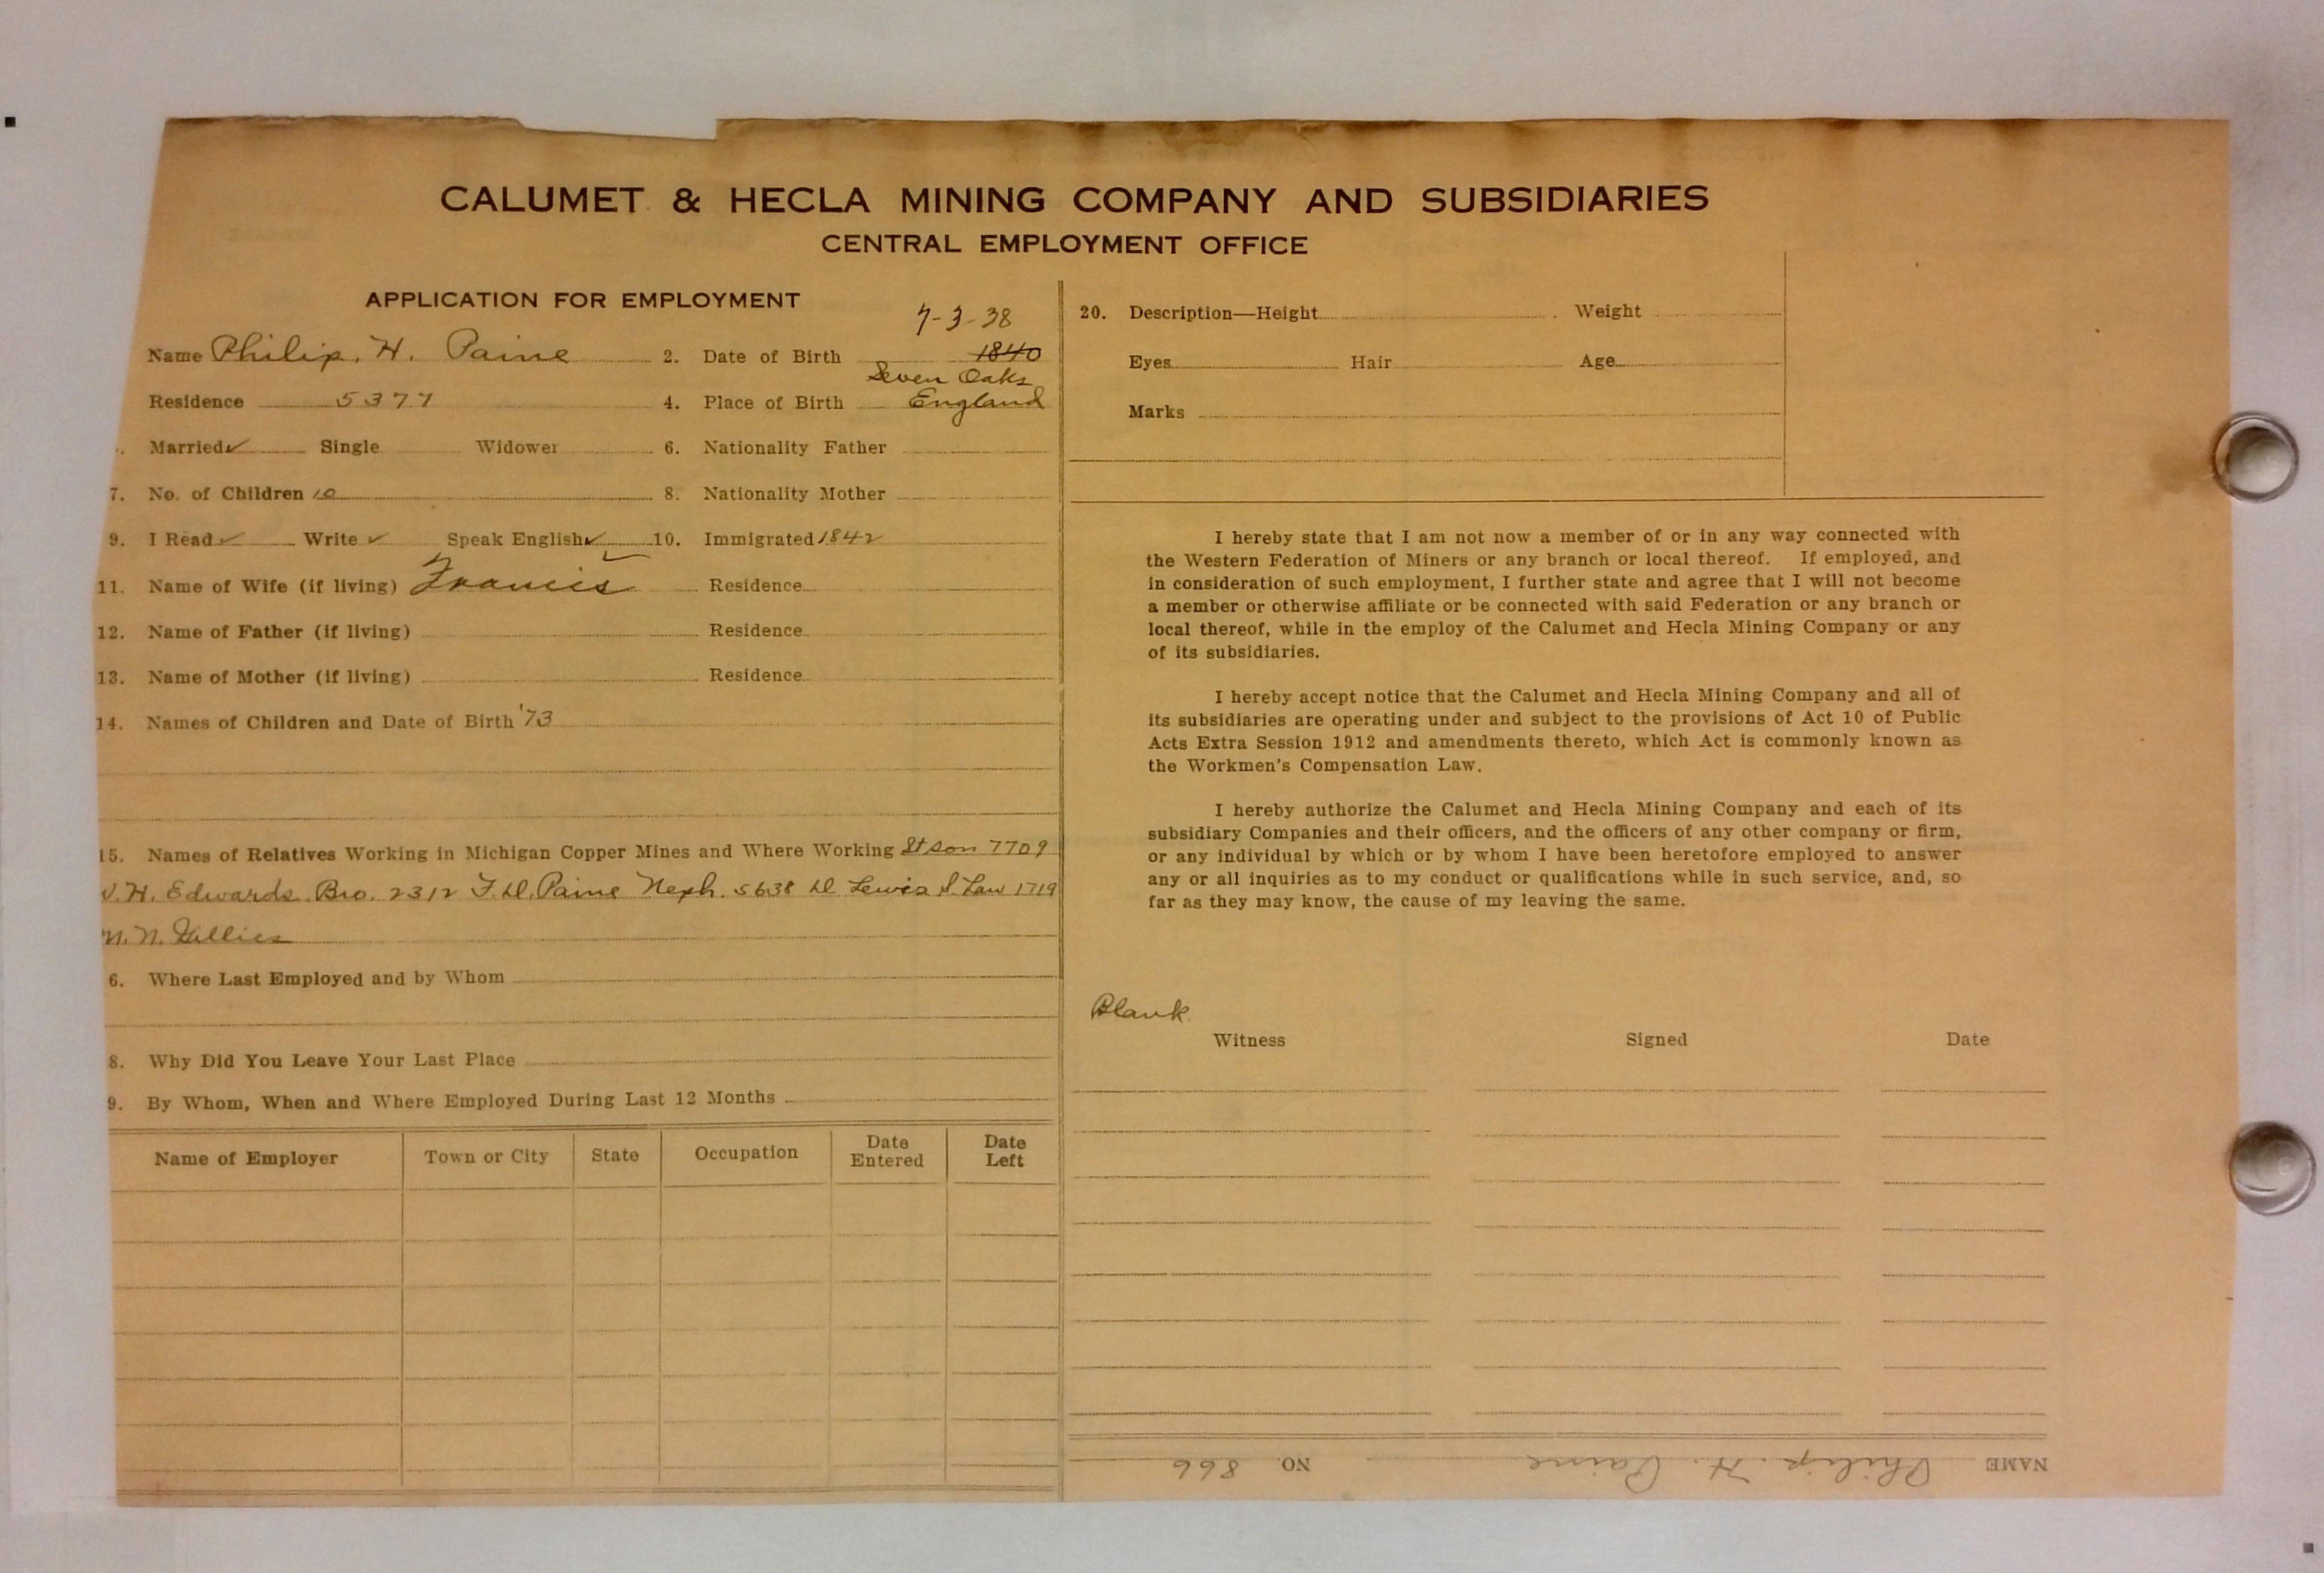 CALUMET & HECLA MINING COMPANY AND SUBSIDIARIES
CENTRAL EMPLOYMENT OFFICE
APPLICATION FOR EMPLOYMENT
7-3-38
Name Philip. H. Paine 2. Date of Birth 1840
Seven Oaks
Residence 5377 4. Place of Birth England
Married ✓ Single Widower 6. Nationality Father
7. No. of Children 10 8. Nationality Mother
9. I Read ✓ Write ✓ Speak English ✓ 10. Immigrated 1842
11. Name of Wife (if living) Francis Residence
12. Name of Father (if living) Residence
13. Name of Mother (if living) Residence
14. Names of Children and Date of Birth '73
15. Names of Relatives Working in Michigan Copper Mines and Where Working St son 7709
H. Edwards. Bro. 2312 Paine Neph. 5638 Lewis S. Law 1719
N.
6. Where Last Employed and by Whom
8. Why Did You Leave Your Last Place
9. By Whom, When and Where Employed During Last 12 Months
Name of Employer Town or City State Occupation Date Entered Date Left
20. Description—Height Weight
Eyes Hair Age
Marks
I hereby state that I am not now a member of or in any way connected with
the Western Federation of Miners or any branch or local thereof. If employed, and
in consideration of such employment, I further state and agree that I will not become
a member or otherwise affiliate or be connected with said Federation or any branch or
local thereof, while in the employ of the Calumet and Hecla Mining Company or any
of its subsidiaries.
I hereby accept notice that the Calumet and Hecla Mining Company and all of
its subsidiaries are operating under and subject to the provisions of Act 10 of Public
Acts Extra Session 1912 and amendments thereto, which Act is commonly known as
the Workmen's Compensation Law.
I hereby authorize the Calumet and Hecla Mining Company and each of its
subsidiary Companies and their officers, and the officers of any other company or firm,
or any individual by which or by whom I have been heretofore employed to answer
any or all inquiries as to my conduct or qualifications while in such service, and, so
far as they may know, the cause of my leaving the same.
Blank
Witness Signed Date
NAME Philip. H. Paine NO. 866